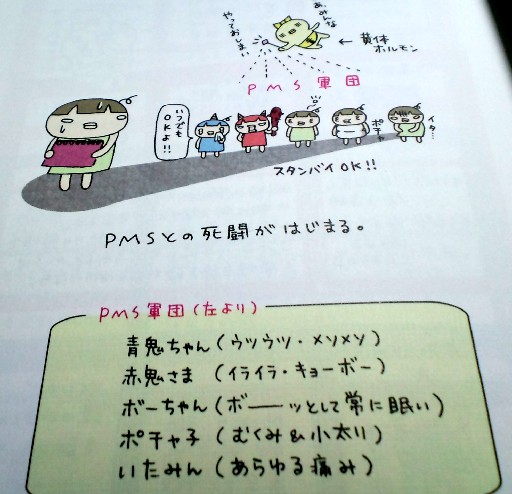 さぁ、みんな
やっておしまい
← 黄体
ホルモン
PMS軍団
いつでも
OKよ!!
ポチャ
イタ…
スタンバイOK!!
PMSとの死闘がはじまる。
PMS軍団(左より)
青鬼ちゃん(ウツウツ・メソメソ)
赤鬼さま(イライラ・キョーボー)
ボーちゃん(ボーーッとして常に眠い)
ポチャ子(むくみ&小太り)
いたみん(あらゆる痛み)